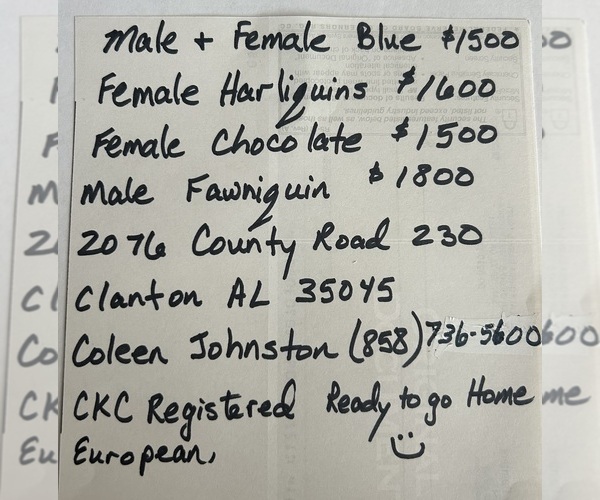 Male + Female Blue $1500
Female Harliquins $1600
Female Chocolate $1500
Male Fawniquin $1800
2076 County Road 230
Clanton AL 35045
Coleen Johnston (858) 736-5600
CKC Registered Ready to go Home
European,